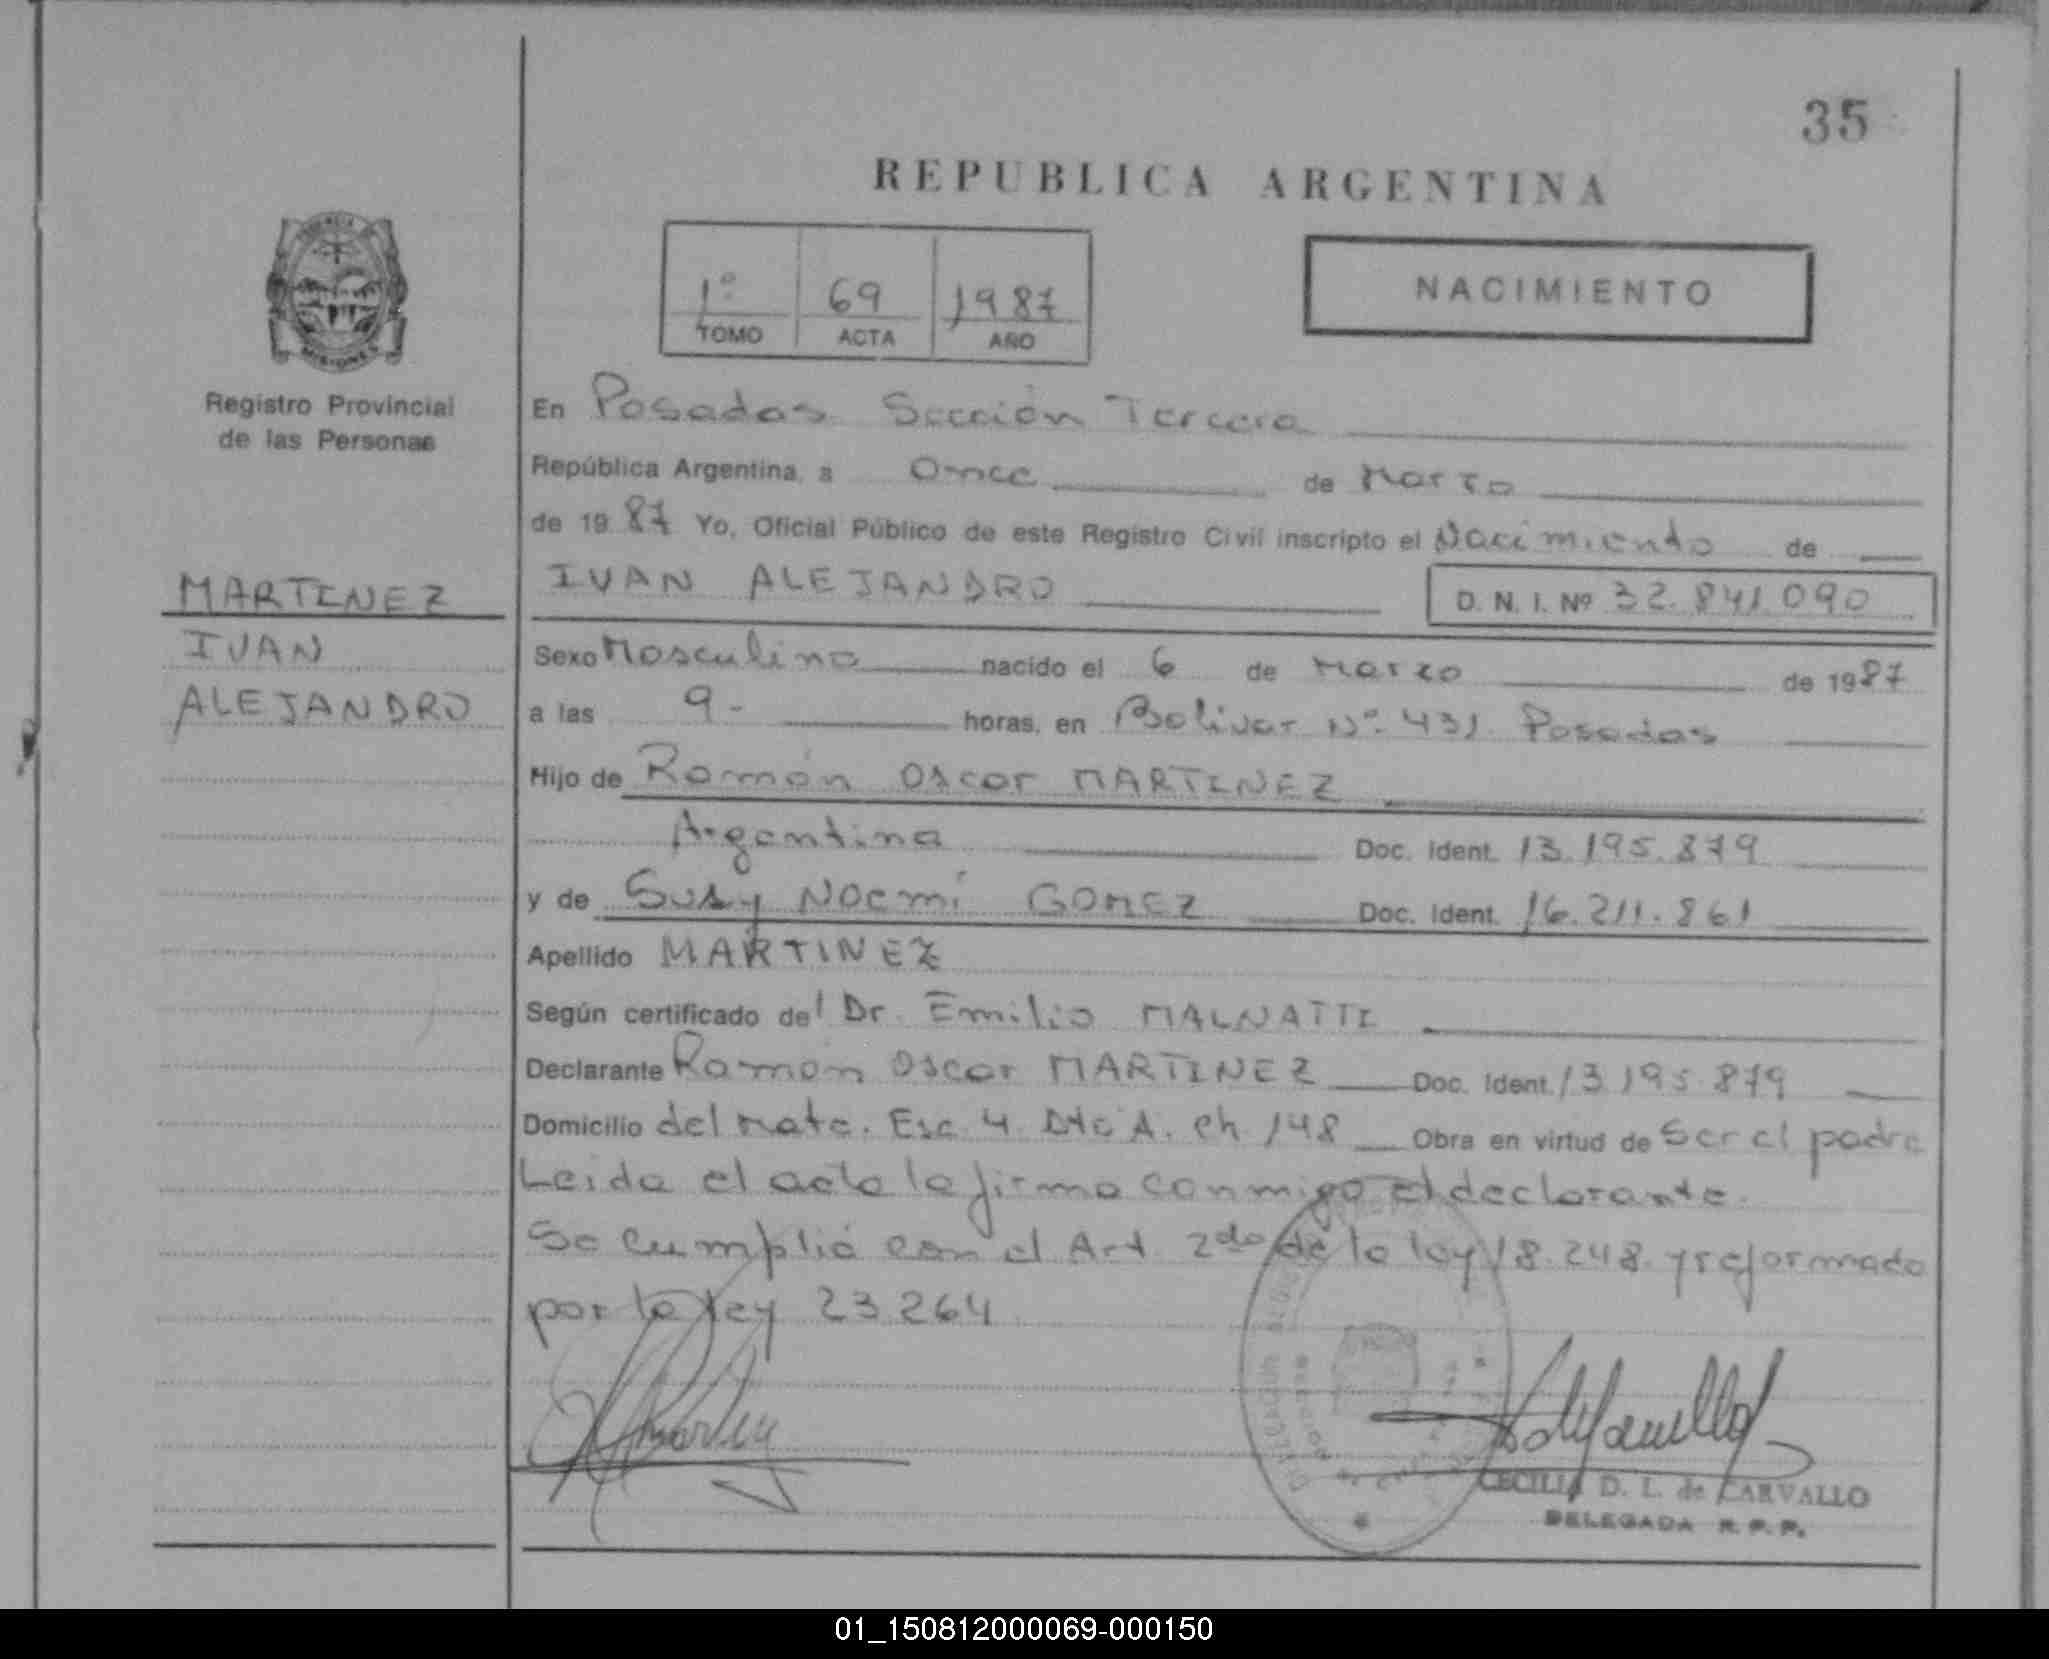 35
REPUBLICA ARGENTINA
PROVINCIA
MISIONES
Registro Provincial
de las Personas
1º 69 1987
TOMO ACTA AÑO
NACIMIENTO
MARTINEZ
IVAN
ALEJANDRO
En Posadas Sección Tercera
República Argentina, a Once de Marzo
de 1987 Yo, Oficial Público de este Registro Civil inscripto el Nacimiento de
IVAN ALEJANDRO D. N. I. Nº 32.841.090
Sexo Masculino nacido el 6 de Marzo de 1987
a las 9- horas, en Bolivar Nº 431. Posadas
Hijo de Ramón Oscar MARTINEZ
Argentina Doc. Ident. 13.195.879
y de Susy Noemí GOMEZ Doc. Ident. 16.211.861
Apellido MARTINEZ
Según certificado del Dr. Emilio MALNATTI
Declarante Ramón Oscar MARTINEZ Doc. Ident. 13.195.879
Domicilio del Mate. Esc. 4. Dto A. Ch 148 Obra en virtud de Ser el padre
Leida el acta la firma conmigo el declarante.
Se cumplió con el Art 2do de la ley 18.248. y reformado
por la ley 23.264
CECILIA D. L. de CARVALLO
DELEGADA R. P. P.
01_150812000069-000150